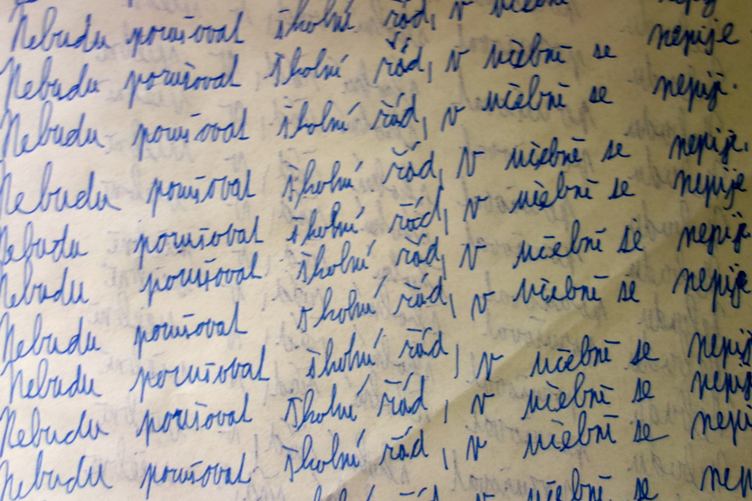 Nebudu porušovat školní řád, v učebně se nepije.
Nebudu porušovat školní řád, v učebně se nepije.
Nebudu porušovat školní řád, v učebně se nepije.
Nebudu porušovat školní řád, v učebně se nepije
Nebudu porušovat školní řád, v učebně se nepije
Nebudu porušovat školní řád, v učebně se nepije
Nebudu porušovat školní řád, v učebně se
Nebudu porušovat školní řád, v učebně se
Nebudu porušovat školní řád, v učebně se
Nebudu porušovat školní řád, v učebně se